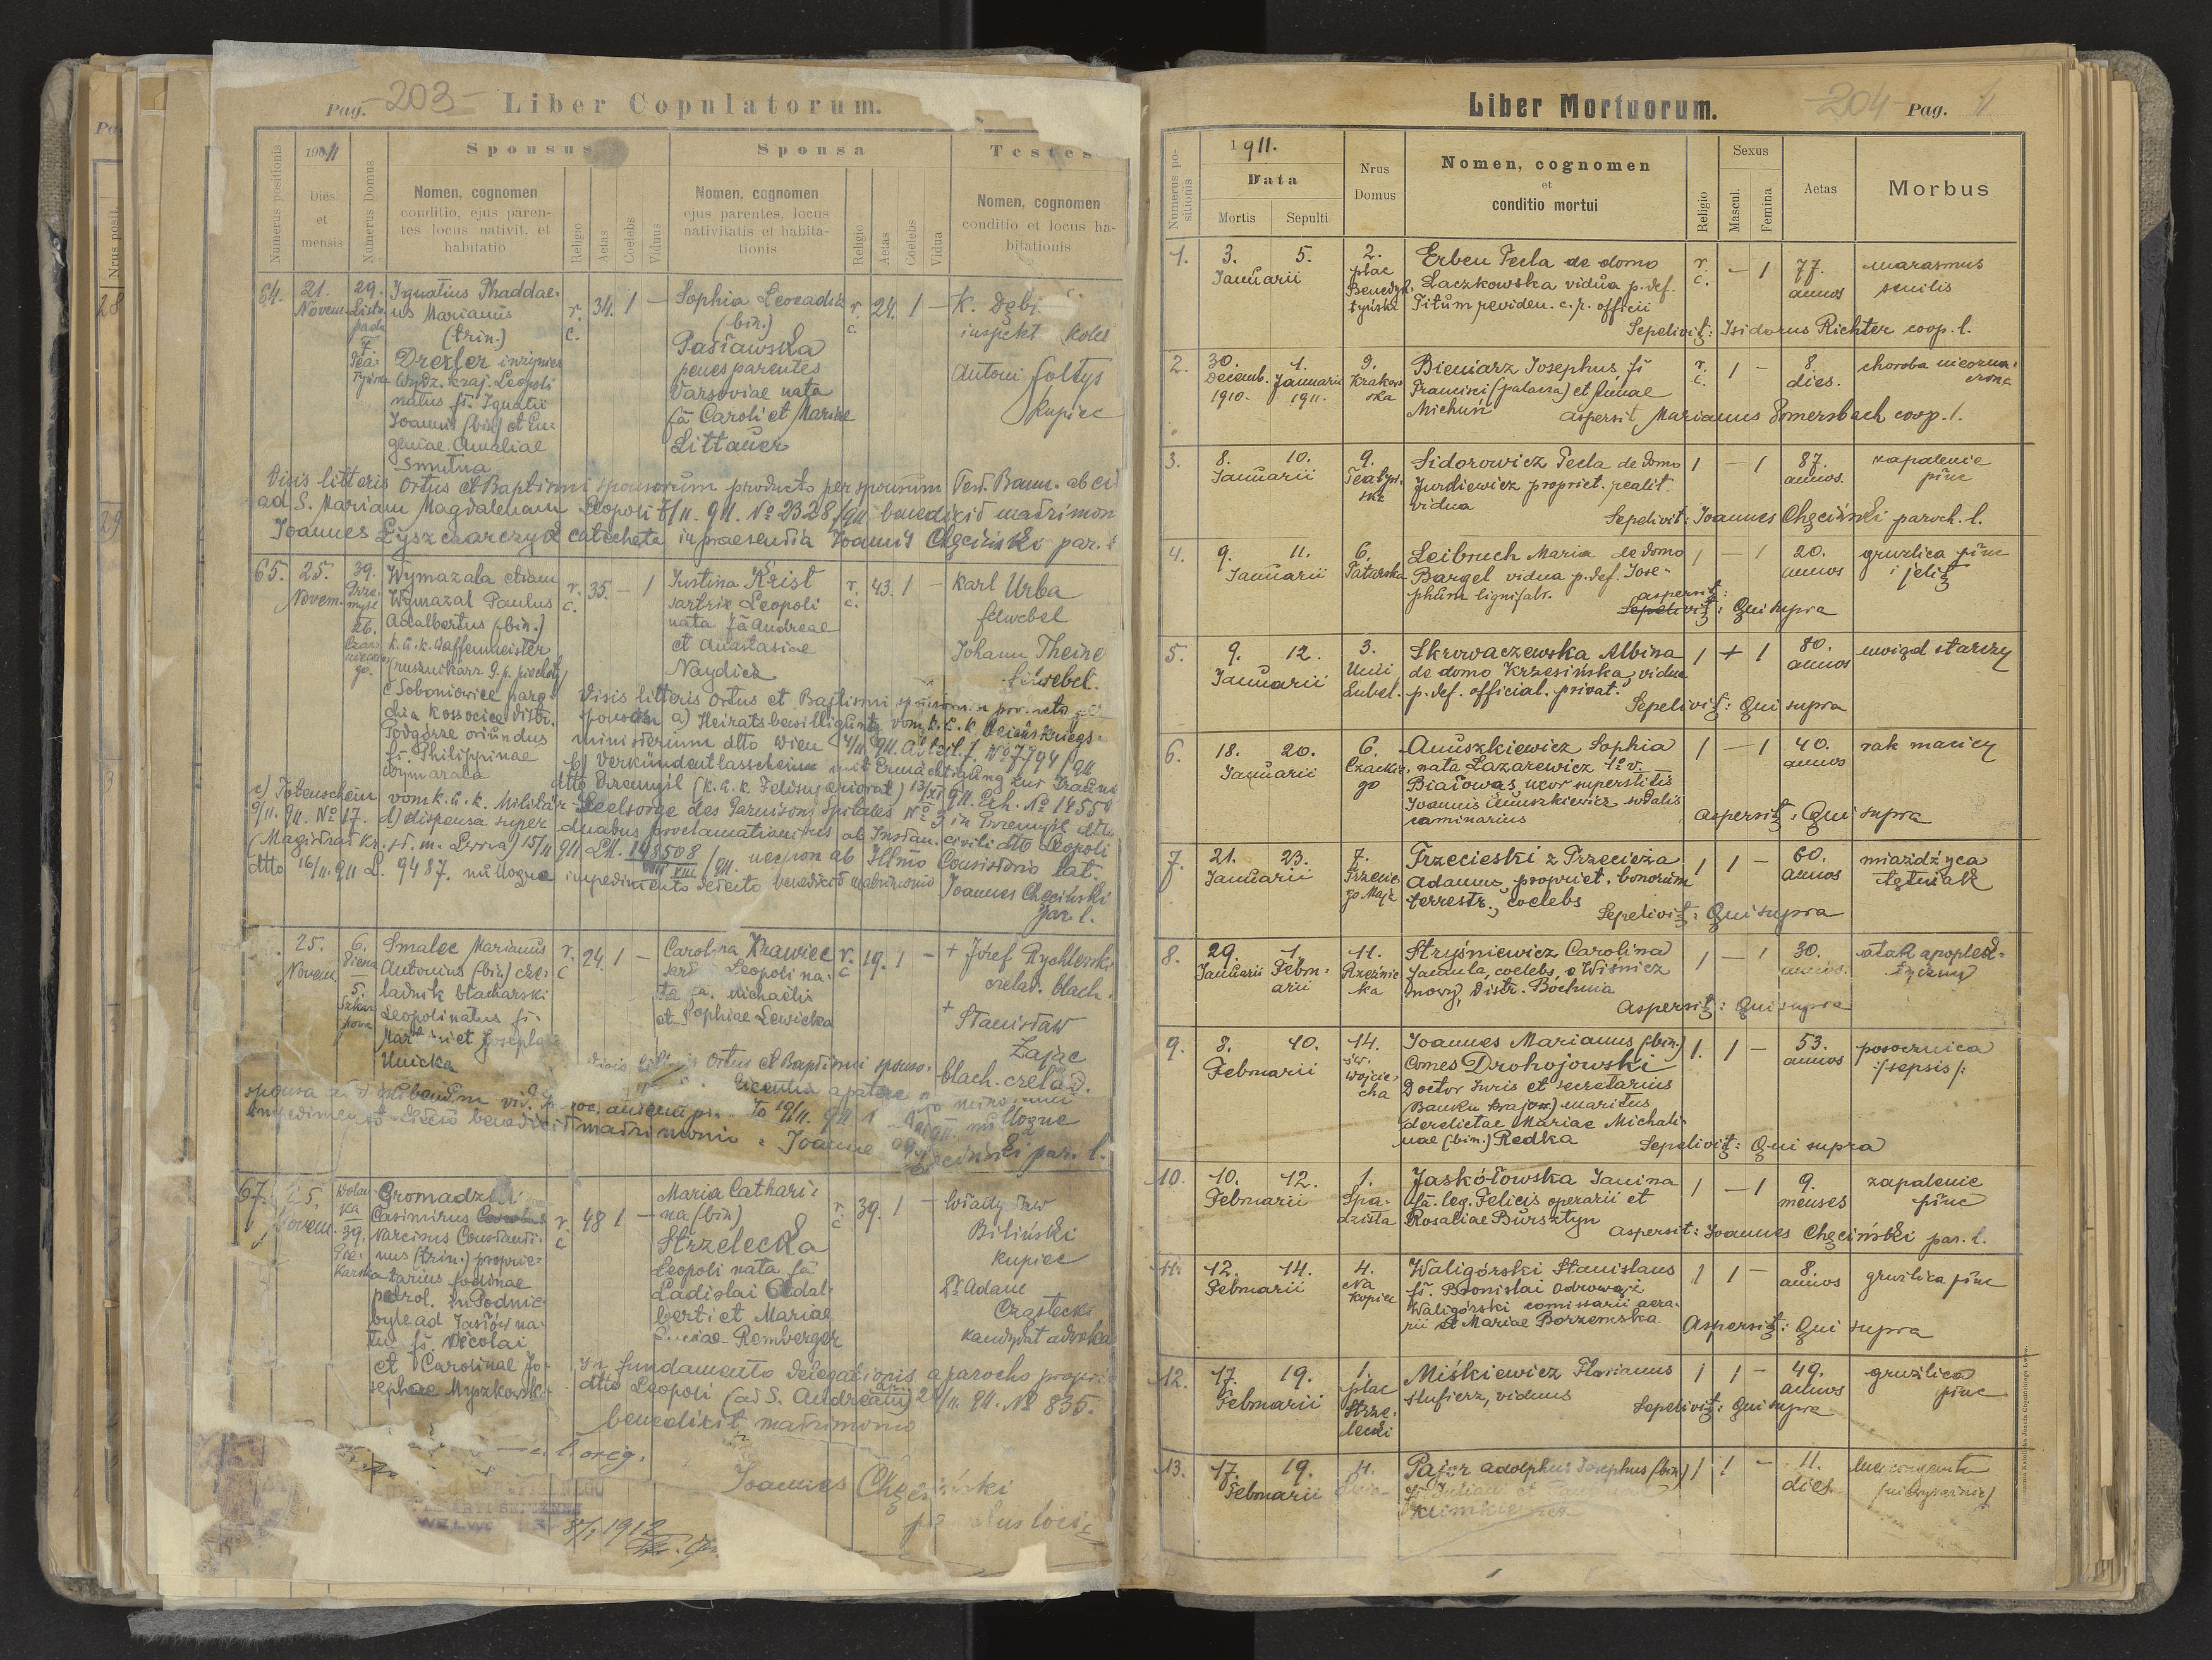 Pag. -203- Liber Copulatorum.
Numerus positionis
1911
Dies
et
mensis
Numerus Domus
Sponsus
Nomen, cognomen
conditio, ejus paren-
tes locus nativit. et
habitatio
Religio
Aetas
Coelebs
Viduus
Sponsa
Nomen, cognomen
ejus parentes, locus
nativitatis et habita-
tionis
Religio
Aetas
Coelebs
Vidua
Testes
Nomen, cognomen
conditio et locus ha-
bitationis
64. 21.
Novem.
29.
Listo
pada
7.
Tea-
tyńska
Ignatius Thaddae-
us Marianus
(trin.)
Drexler inżynier
Wydz. kraj. Leopoli
natus fs. Ignatii
Joannis (bin.) et Eu-
geniae Amaliae
Smutna
r.
c.
34. 1 —
Sophia Leocadia
(bin.)
Pasławska
penes parentes
Varsoviae nata
fa Caroli et Mariae
Littauer
r.
c.
24. 1 —
K. Dębi
inspekt. kolei
Antoni Sołtys
kupiec
Visis litteris Ortus et Baptismi sponsorum producto per sponsum Test. Bann. ab
ad S. Mariam Magdalenam Leopoli 7/11. 911. No 2328/911 benedixit matrimon
Joannes Łyszczarczyk catecheta in praesentia Joannis Chęciński par. l.
65. 25.
Novem.
39.
Prze-
myśl
26.
Czar-
nieckie
go.
Wymazala etiam
Wymazal Paulus
Adalbertus (bin.)
k. u. k. Waffenmeister
(rusznikarz 9. p. piechoty)
e Soboniowice paro-
chia Kossocice distr.
Podgórze oriundus
fs. Philippinae
Wymazala
r.
c.
35. — 1
Justina Krist
sartrix Leopoli
nata fa Andreae
et Anastasiae
Naydicz
r.
c.
43. 1 —
Karl Urba
felwebel
Johann Theine
felwebel.
Visis litteris Ortus et Baptismi
a) Heiratsbewilligung vom k. u. k. Reichskriegs-
ministerium dtto Wien 4/11. 911. Abteil. 1. No 7794/911
b) Verkündentlasschein mit Ermächtigung zur Trauung
dtto Przemyśl (k. u. k. Feldsuperiorat) 13/XI 911. Exh. No 14550
c) Totenschein vom k. u. k. Militär-Seelsorge des Garnisons Spitales No 3 in Przemyśl dtto
9/11. 911. No 17. d) dispensa super duabus proclamationibus ab Instan. civili dtto Leopoli
(Magistrat kr. st. m. Lwowa) 15/11 911 LM. 148508/911. necnon ab Illmo Consistorio lat.
dtto 16/11. 911 L. 9487. nulloque impedimento detecto benedixit matrimonio Joannes Chęciński
par. l.
25.
Novem.
6.
5.
Smalec Marianus
Antonius (bin.) cze-
ladnik blacharski
Leopoli natus fs.
et Josephae
Unicka
r.
c
24. 1 —
Carolina Krawiec
Leopoli na-
ta fa. Michaelis
et Sophiae Lewicka
r.
c
19. 1 —
+ Józef Rychlewski
czelad. blach.
+ Stanisław
Zając
blach. czelad.
Ortus et Baptismi sponso-
licentia a patre
nulloque
impedimento detecto benedixit matrimonio Joannes
Chęciński par. l.
67. 25.
Novem.
Wolań
ka
39.
Pie-
karska
Gromadzki
Casimirus
Narcisus Constanti-
nus (trin.) proprie-
tarius fodinae
petrol. in Podnie-
byle ad Jasłów na-
tus fs. Nicolai
et Carolinae Jo-
sephae Myszkowska
r.
c
48 1 —
Maria Cathari-
na (bin)
Strzelecka
Leopoli nata fa
Ladislai Adal-
berti et Mariae
Luciae Romberger
r.
c
39. 1 —
Władysław
Biliński
kupiec
Dr Adam
Orzątecki
kandydat adwoka
In fundamento delegationis a parocho proprio
dtto Leopoli (ad S. Andream ap.) 2/11. 911. No 835.
benedixit matrimonio
orig.
Joannes Chęciński
1912
Liber Mortuorum. -204 Pag. 1
Numerus po-
sitionis
1911.
Data
Mortis Sepulti
Nrus
Domus
Nomen, cognomen
et
conditio mortui
Religio
Sexus
Mascul.
Femina
Aetas
Morbus
1. 3. 5.
Januarii
2.
plac
Benedyk-
tyński
Erben Tecla de domo
Laczkowska vidua p. def.
Titum reviden. c. r. officii
r.
c.
— 1
77.
annos
marasmus
senilis
Sepelivit: Isidorus Richter coop. l.
2. 30. 1.
Decemb. Januarii
1910. 1911.
9.
Krakow
ska
Bieniarz Josephus, fs
Francisci (palacza) et Annae
Michuń
r.
c.
1 —
8.
dies.
choroba nieozna-
czona
aspersit Marianus Somersbach coop. l.
3. 8. 10.
Januarii
9.
Teatyń-
ska
Sidorowicz Tecla de domo
Jurdiewicz propriet. realit.
vidua
1 — 1
87.
annos.
zapalenie
płuc
Sepelivit: Joannes Chęciński paroch. l.
4. 9. 11.
Januarii
6.
Tatarska
Leibruch Maria de domo
Bargel vidua p. def. Jose-
phum lignifabr.
1 — 1
20.
annos
gruźlica płuc
i jelit
aspersit:
Sepelivit: Qui supra
5. 9. 12.
Januarii
3.
Unii
Lubel.
Skrowaczewska Albina
de domo Krzesińska, vidua
p. def. official. privat.
1 + 1
80.
annos
uwiąd starczy
Sepelivit: Qui supra
6. 18. 20.
Januarii
6.
Czackie-
go
Anuszkiewicz Sophia
nata Lazarewicz 1o v.
Białowąs, uxor superstitis
Joannis Anuszkiewicz sodalis
caminarius
1 — 1
40.
annos
rak macicy
aspersit: Qui supra
7. 21. 23.
Januarii
7.
Trzecie-
go Maja
Trzecieski z Trzecieża
Adamus, propriet. bonorum
terrestr., coelebs
1 1 —
60.
annos
miażdżyca
tętniak
Sepelivit: Qui supra
8. 29. 1.
Januarii Febru-
arii
11.
Rzeźnic
ka
Stryśniewicz Carolina
famula, coelebs, e Wiśnicz
nowy, distr. Bochnia
1 — 1
30.
annos.
atak apoplek-
tyczny
Aspersit: Qui supra
9. 8. 10.
Februarii
14.
św.
Wojcie-
cha
Joannes Marianus (bin.)
Comes Drohojowski
Doctor Juris et secretarius
Banku krajow) maritus
derelictae Mariae Michali-
nae (bin.) Redka
1. 1 —
53.
annos
posocznica
/:sepsis/:
Sepelivit: Qui supra
10. 10. 12.
Februarii
1.
Spa-
dzista
Jaskółowska Janina
fa. leg. Felicis operarii et
Rosaliae Bursztyn
1 — 1
9.
menses
zapalenie
płuc
aspersit: Joannes Chęciński par. l.
11. 12. 14.
Februarii
4.
Na
kopiec
Waligórski Stanislaus
fs. Bronislai Odrowąż
Waligórski comissarii aera-
rii et Mariae Borzemska
1 1 —
8.
annos
gruźlica płuc
Aspersit: Qui supra
12. 17. 19.
Februarii
1.
plac
Strze-
lecki
Miśkiewicz Florianus
stufierz, viduus
1 1 —
49.
annos
gruźlica
płuc
Sepelivit: Qui supra
13. 17. 19.
Februarii
11.
Pajor Adolphus Josephus (bin)
fs. Juliani et
1 1 —
11.
dies.